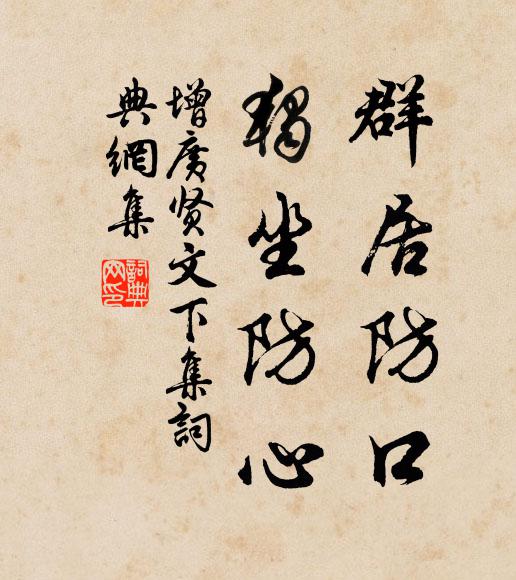 群居防口
獨坐防心
增廣贤文下集詞
典網集
詞典
网印